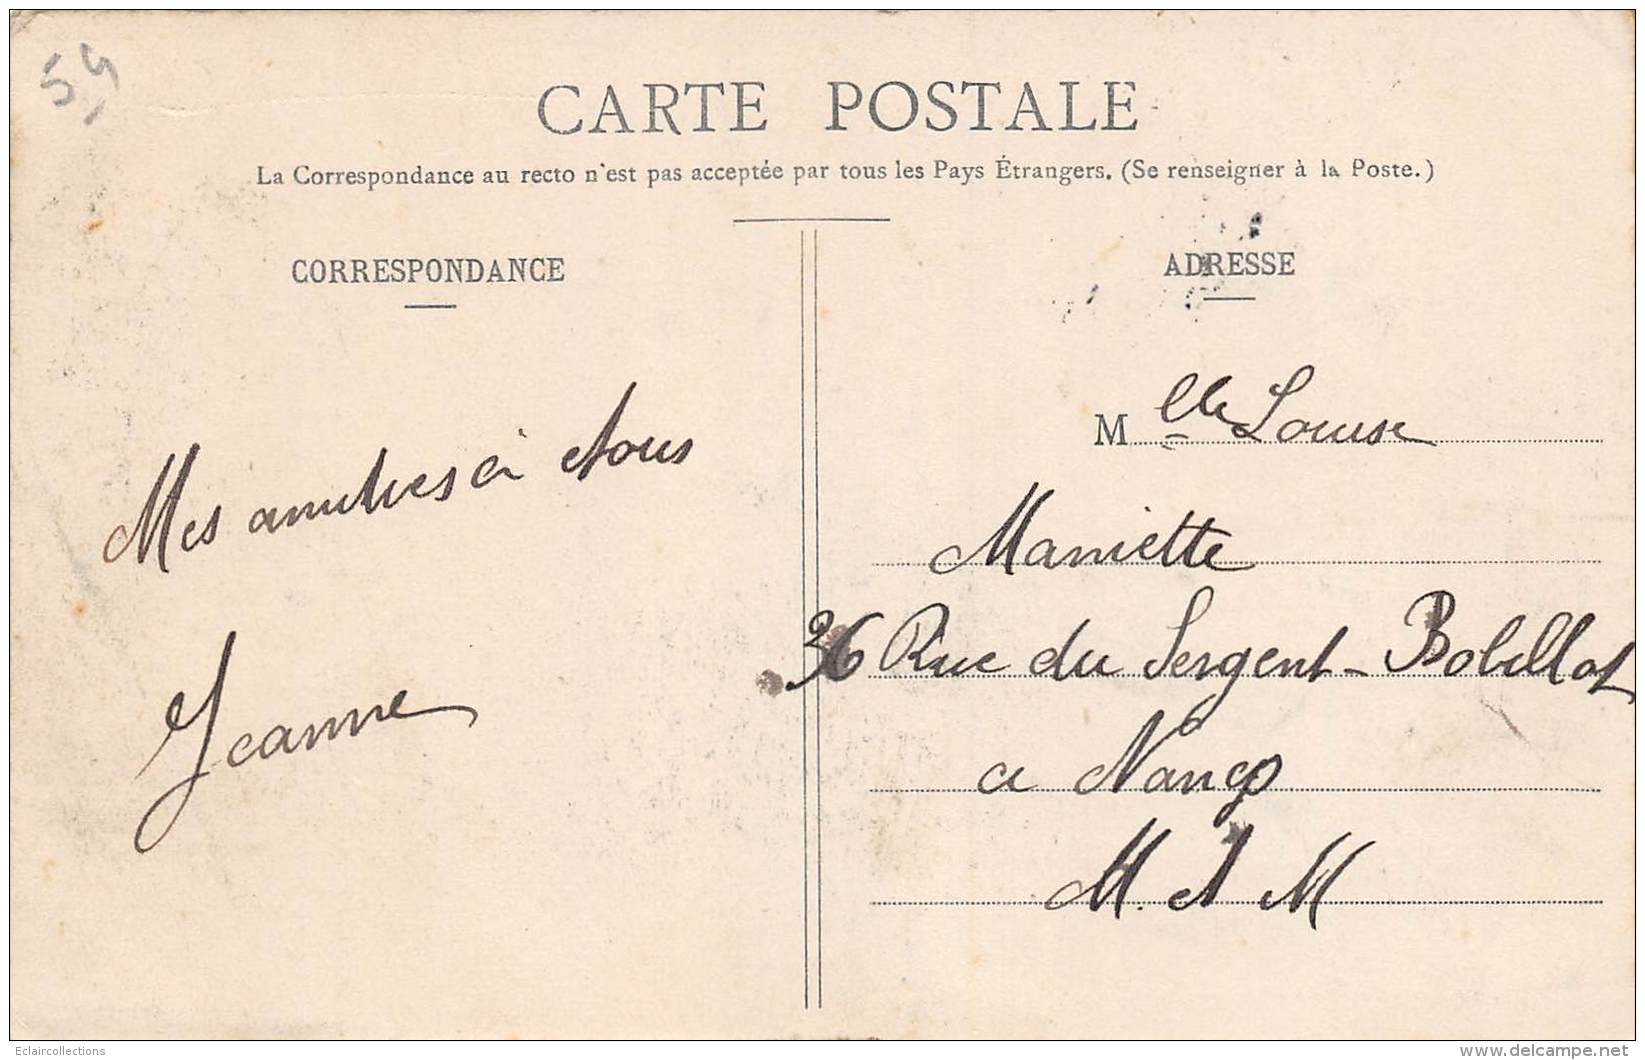 54
CARTE POSTALE
La Correspondance au recto n'est pas acceptée par tous les Pays Étrangers. (Se renseigner à la Poste.)
CORRESPONDANCE
Mes amitiés à tous
Jeanne
ADRESSE
Mlle Louise
Mariette
36 Rue du Sergent-Bobillot
a Nancy
M. et M
Eclaircollections
www.delcampe.net